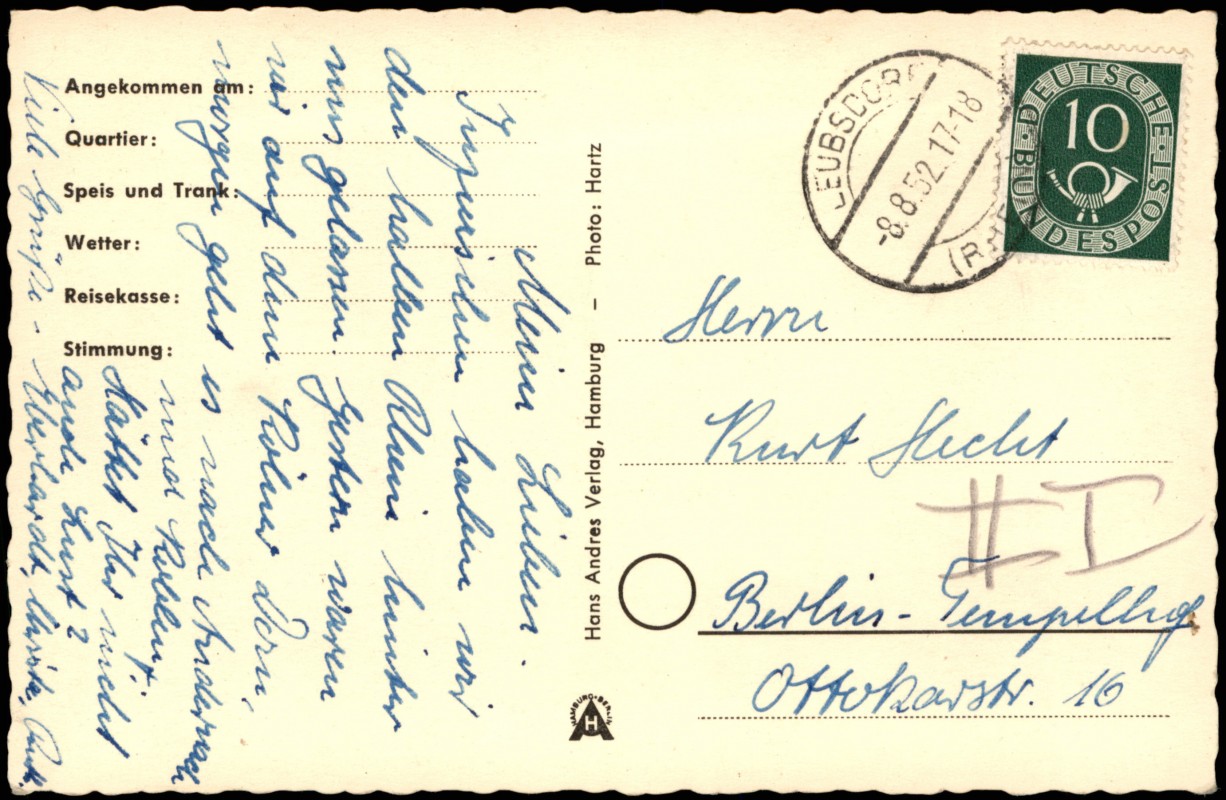 Angekommen am:
Quartier:
Speis und Trank:
Wetter:
Reisekasse:
Stimmung:
Meine Lieben.
Inzwischen haben wir
den halben Rhein hinter
uns gelassen. Gestern waren
wir auf dem Kölner Dom,
morgen geht es nach Andernach
und Koblenz.
Hättet Ihr nicht
auch Lust?
Viele Grüße - Eberhardt,
Hans Andres Verlag, Hamburg – Photo: Hartz
HAMBURG • BERLIN
H
LEUBSDORF
-8.8.52.17-18
(RHEIN
DEUTSCHE BUNDESPOST
10
Herrn
Kurt Hecht
II I
Berlin-Tempelhof
Ottokarstr. 16